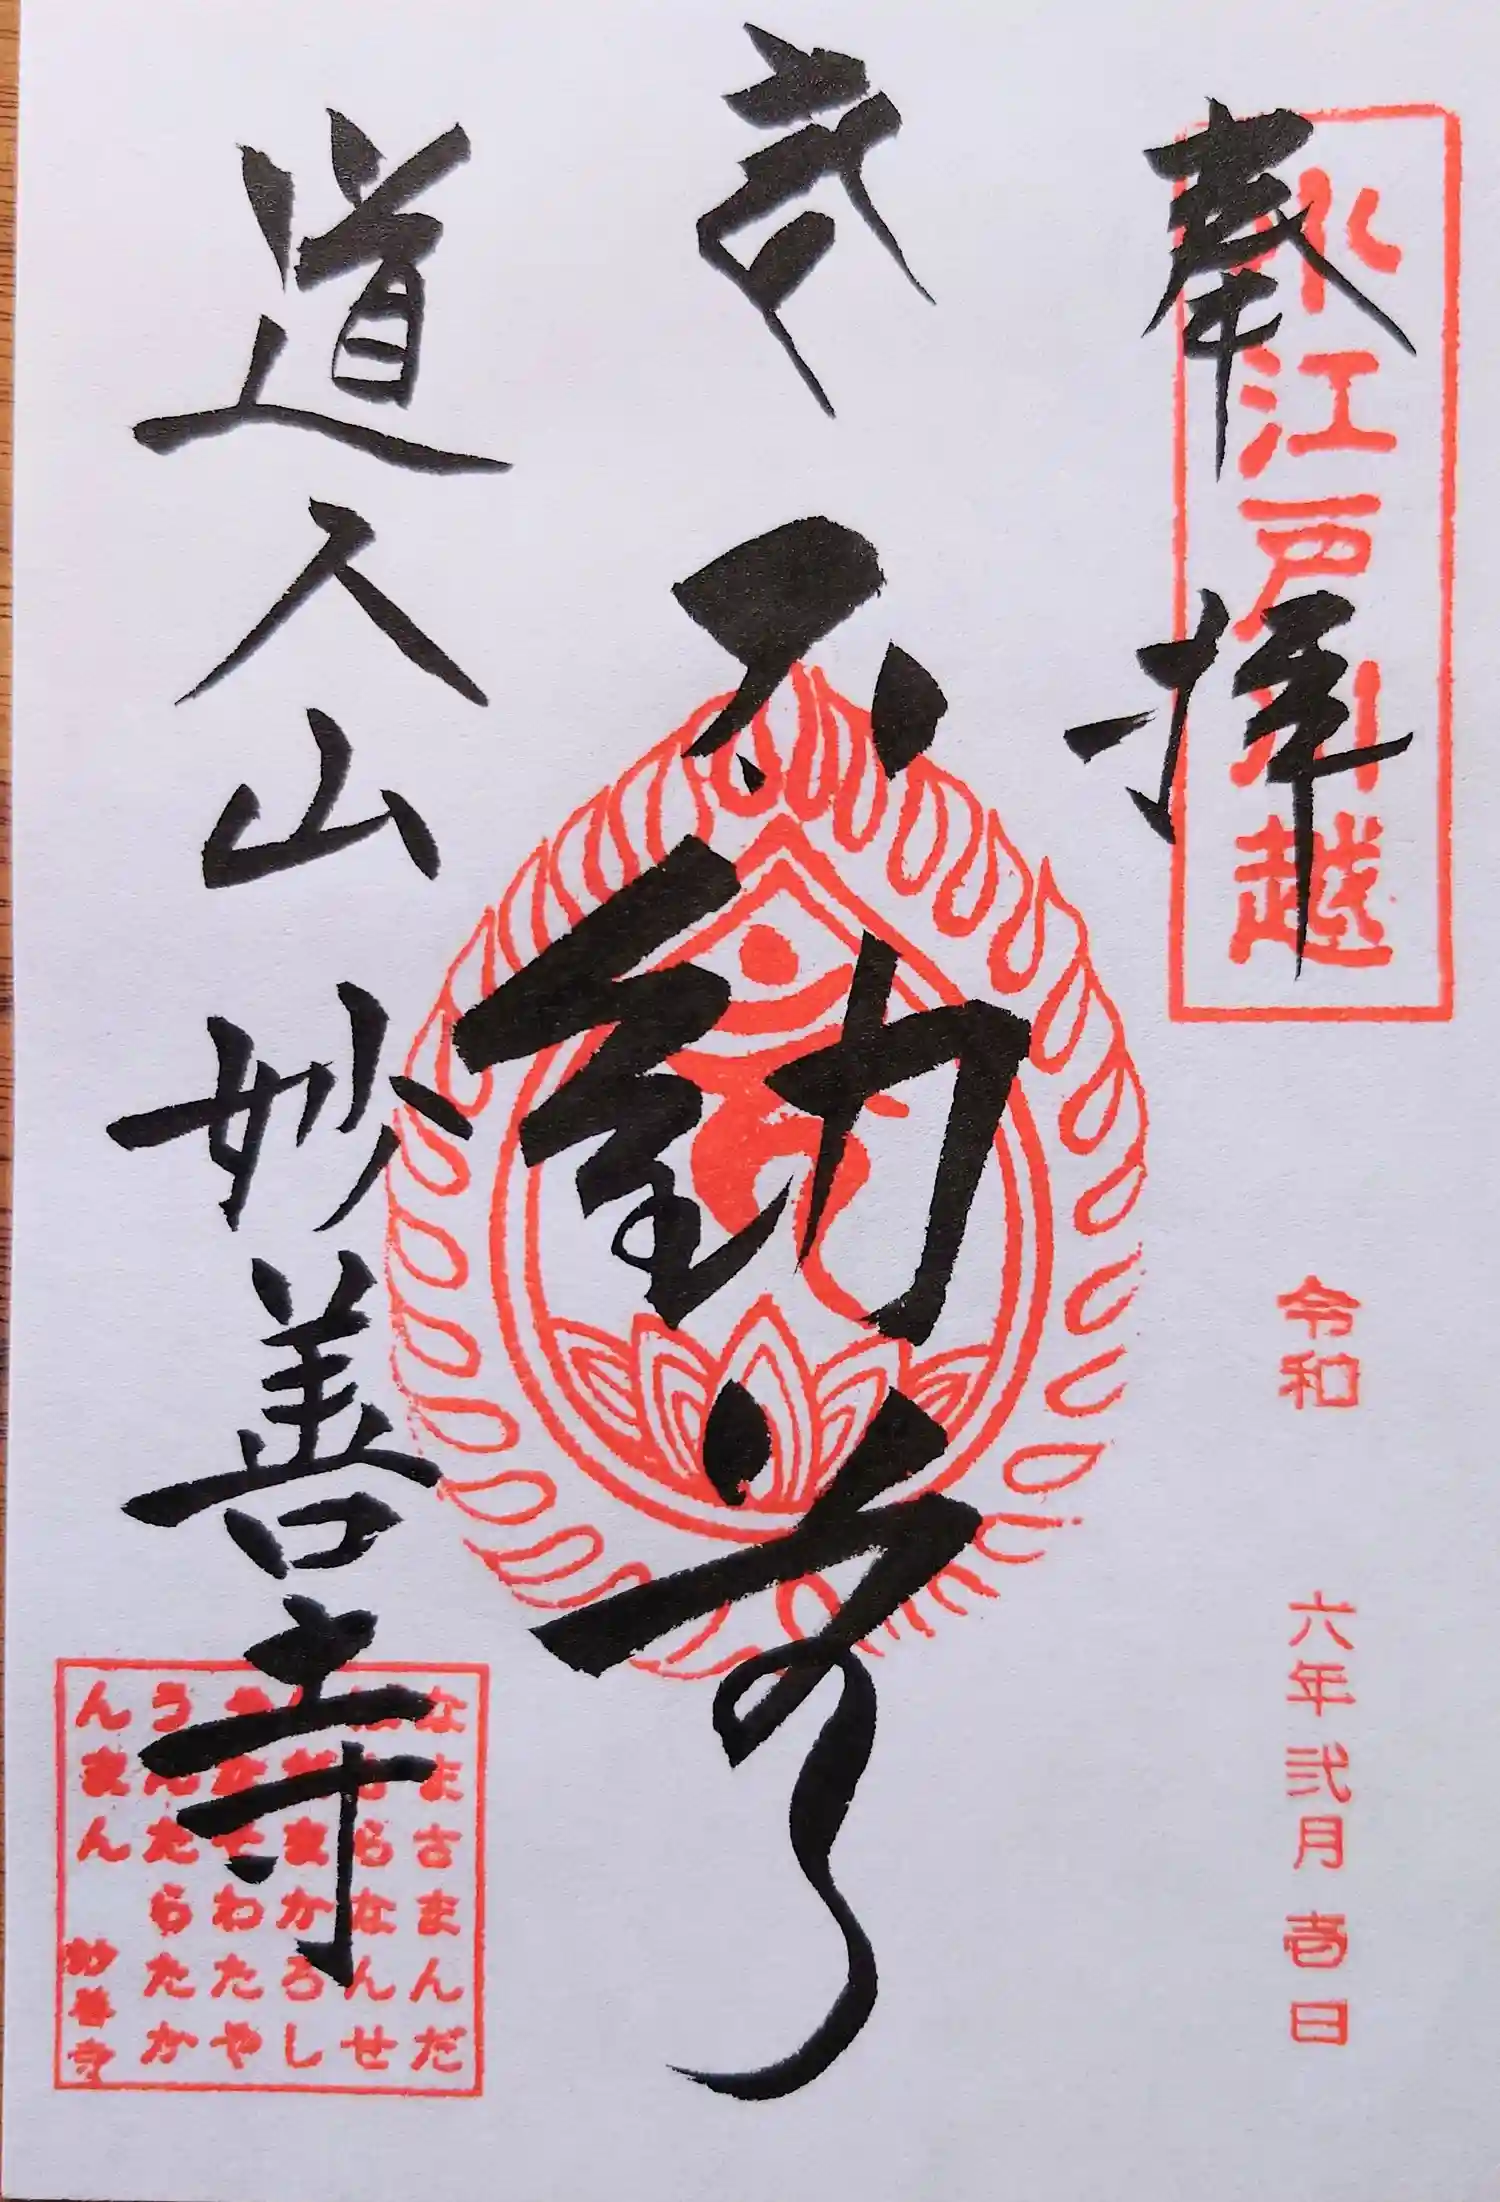 奉拝
小江戸川越
令和 六年弐月壱日
不動尊
道人山 妙善寺
なまさまんだ
ばさらなんせ
んだまかろし
やなそわたや
うんたらたか
んまん 妙善寺